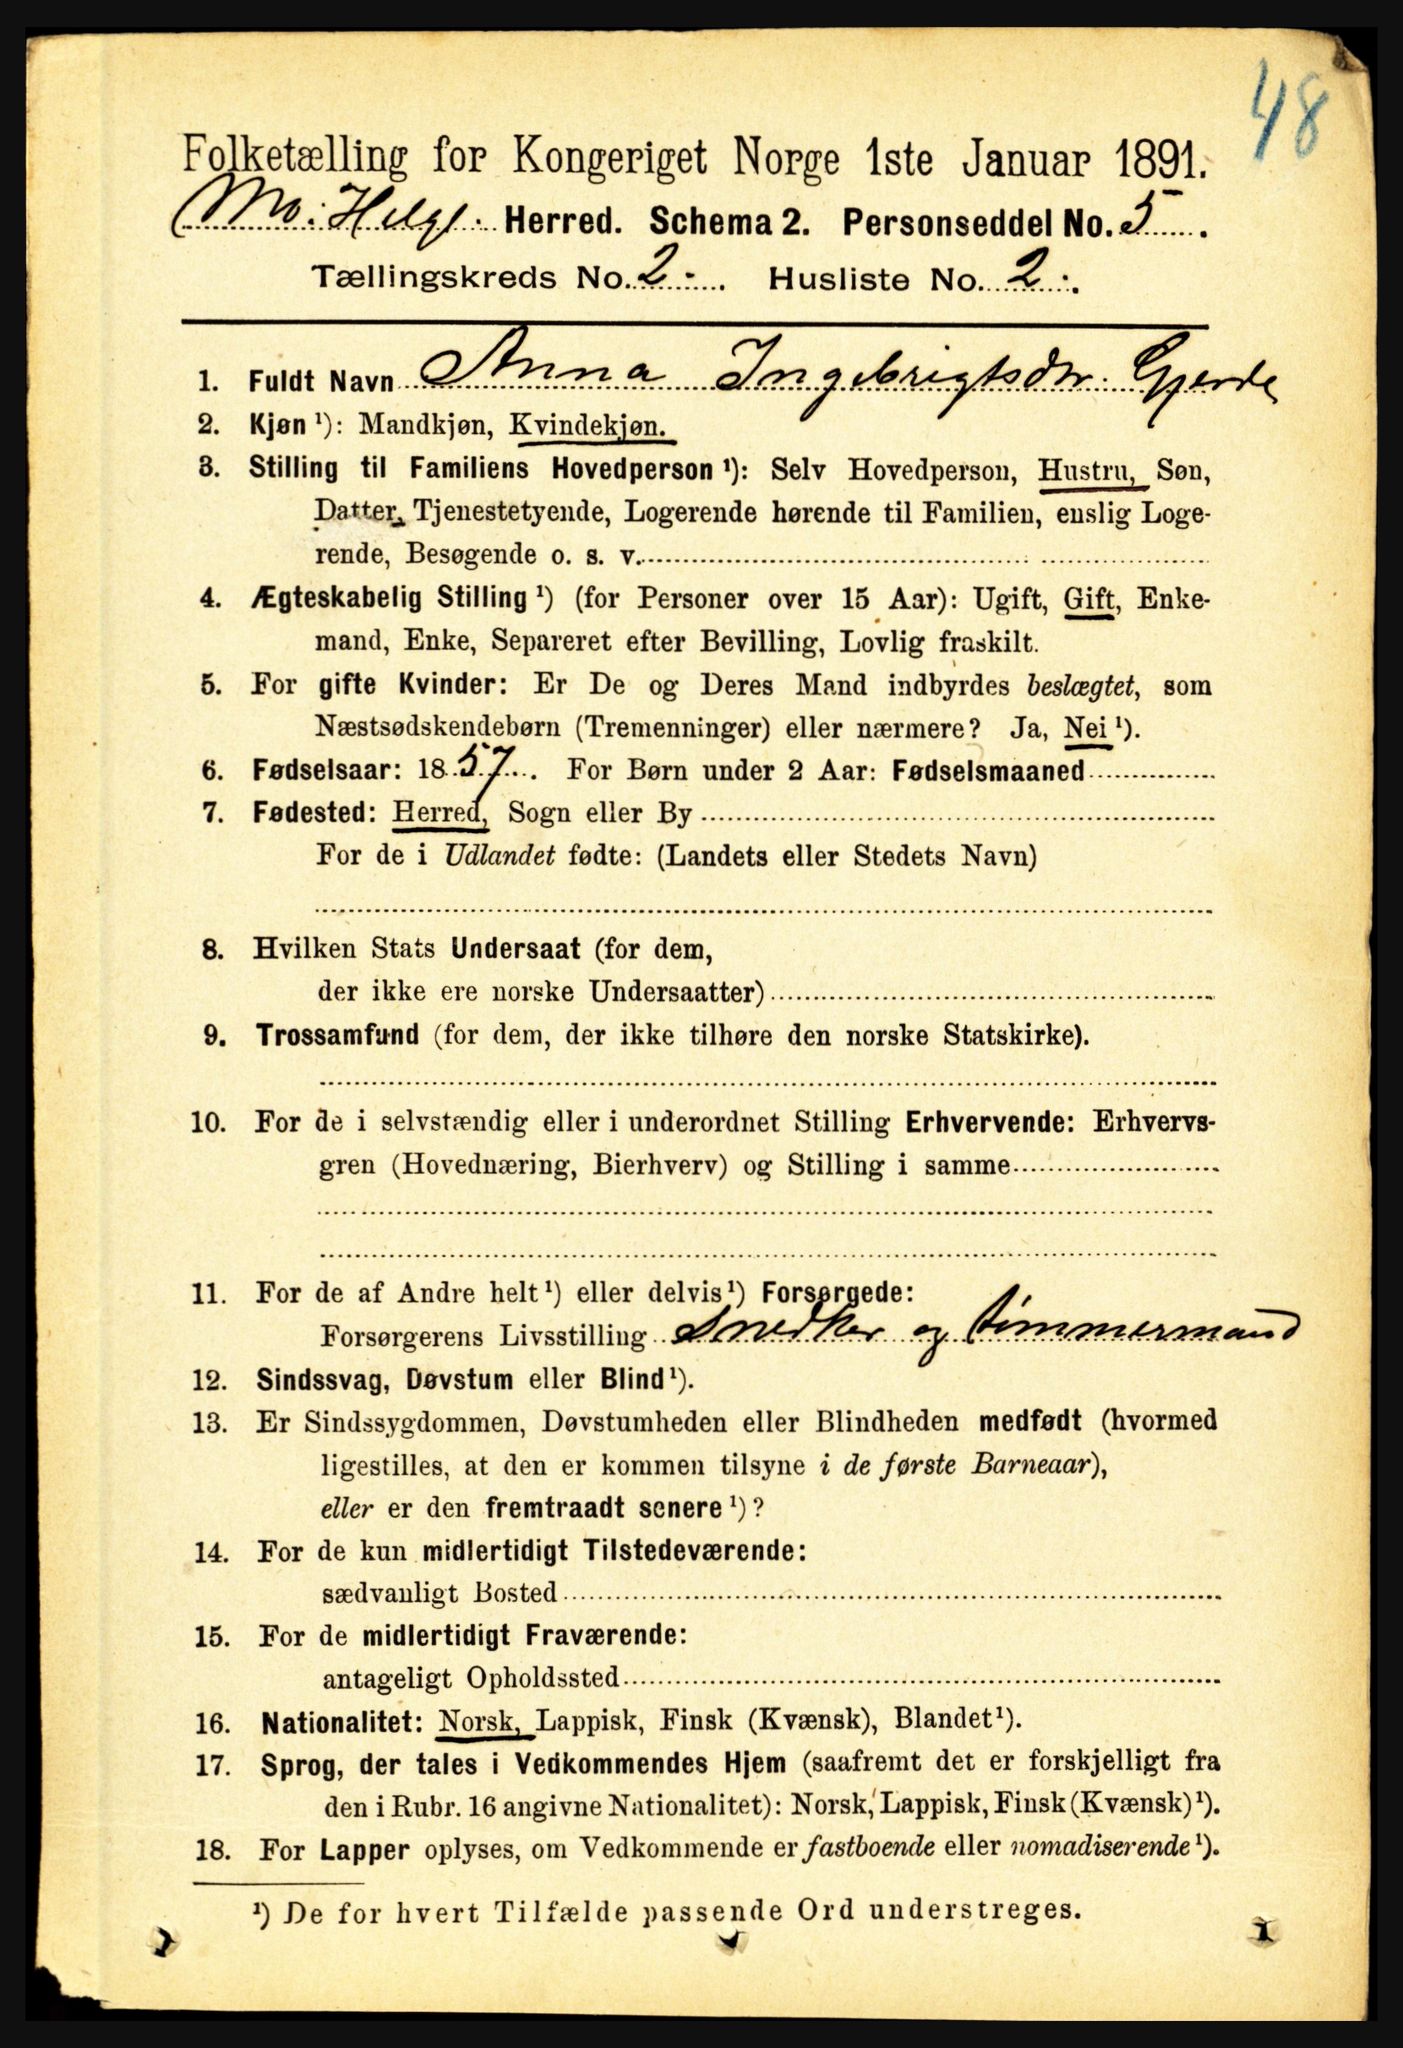 48
Folketælling for Kongeriget Norge 1ste Januar 1891.
Mo i Helgl. Herred. Schema 2. Personseddel No. 5.
Tællingskreds No. 2. Husliste No. 2.
1. Fuldt Navn Anna Ingebrigtsdtr. Gjerde
2. Kjøn ¹): Mandkjøn, Kvindekjøn.
3. Stilling til Familiens Hovedperson ¹): Selv Hovedperson, Hustru, Søn,
Datter, Tjenestetyende, Logerende hørende til Familien, enslig Loge-
rende, Besøgende o. s. v.
4. Ægteskabelig Stilling ¹) (for Personer over 15 Aar): Ugift, Gift, Enke-
mand, Enke, Separeret efter Bevilling, Lovlig fraskilt.
5. For gifte Kvinder: Er De og Deres Mand indbyrdes beslægtet, som
Næstsødskendebørn (Tremenninger) eller nærmere? Ja, Nei ¹).
6. Fødselsaar: 1857. For Børn under 2 Aar: Fødselsmaaned
7. Fødested: Herred, Sogn eller By
For de i Udlandet fødte: (Landets eller Stedets Navn)
8. Hvilken Stats Undersaat (for dem,
der ikke ere norske Undersaatter)
9. Trossamfund (for dem, der ikke tilhøre den norske Statskirke).
10. For de i selvstændig eller i underordnet Stilling Erhvervende: Erhvervs-
gren (Hovednæring, Bierhverv) og Stilling i samme
11. For de af Andre helt ¹) eller delvis ¹) Forsørgede:
Forsørgerens Livsstilling Snedker og tømmermand
12. Sindssvag, Døvstum eller Blind ¹).
13. Er Sindssygdommen, Døvstumheden eller Blindheden medfødt (hvormed
ligestilles, at den er kommen tilsyne i de første Barneaar),
eller er den fremtraadt senere ¹)?
14. For de kun midlertidigt Tilstedeværende:
sædvanligt Bosted
15. For de midlertidigt Fraværende:
antageligt Opholdssted
16. Nationalitet: Norsk, Lappisk, Finsk (Kvænsk), Blandet ¹).
17. Sprog, der tales i Vedkommendes Hjem (saafremt det er forskjelligt fra
den i Rubr. 16 angivne Nationalitet): Norsk, Lappisk, Finsk (Kvænsk) ¹).
18. For Lapper oplyses, om Vedkommende er fastboende eller nomadiserende ¹).
¹) De for hvert Tilfælde passende Ord understreges.